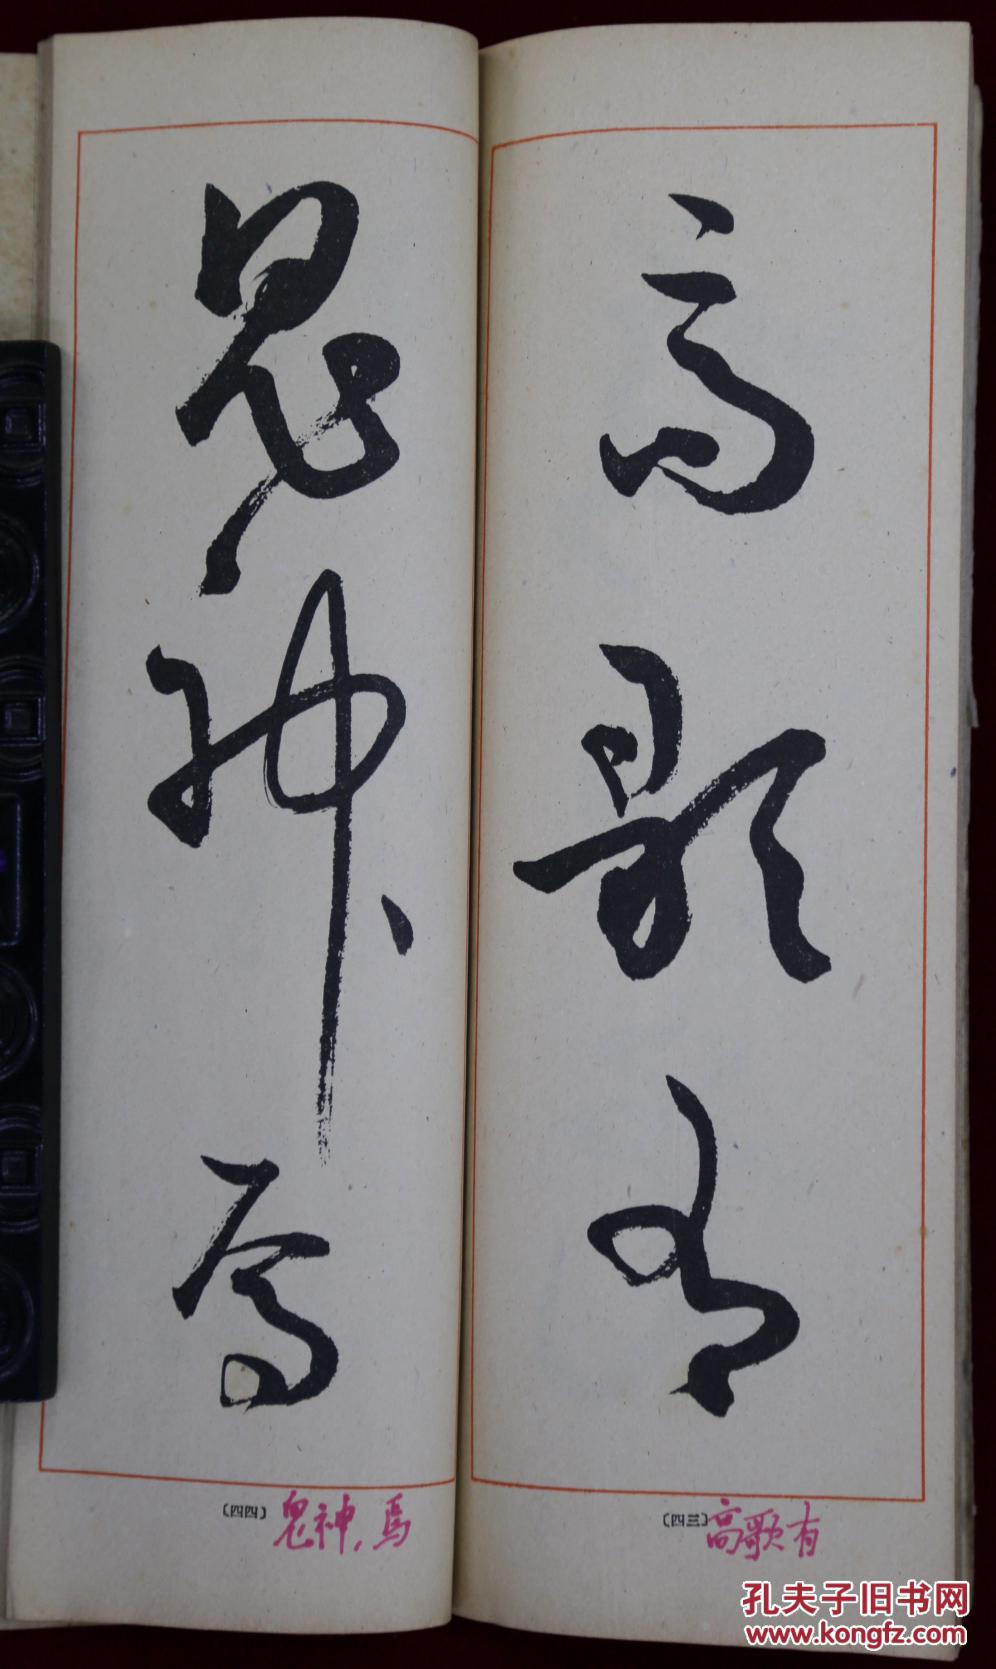 高歌有
鬼神焉
〔四三〕
高歌有
〔四四〕
鬼神,焉
孔夫子旧书网
www.kongfz.com